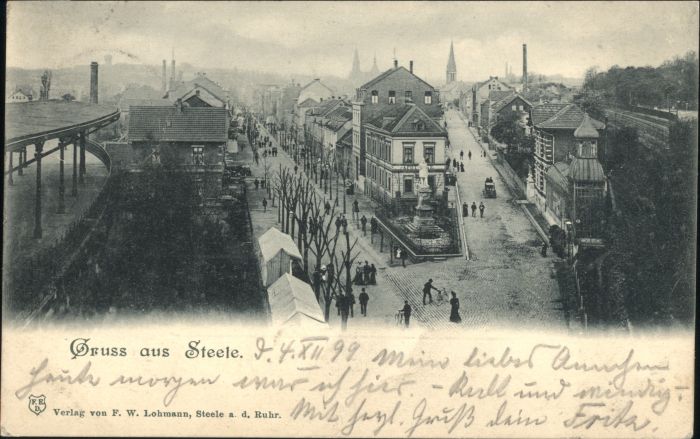 Gruss aus Steele. d. 4. XII 99 Mein liebes Annchen
Heute morgen war ich hier. - Kalt und windig -
Mit herzl. Gruß dein Fritz.
F.E.D.
Verlag von F. W. Lohmann, Steele a. d. Ruhr.